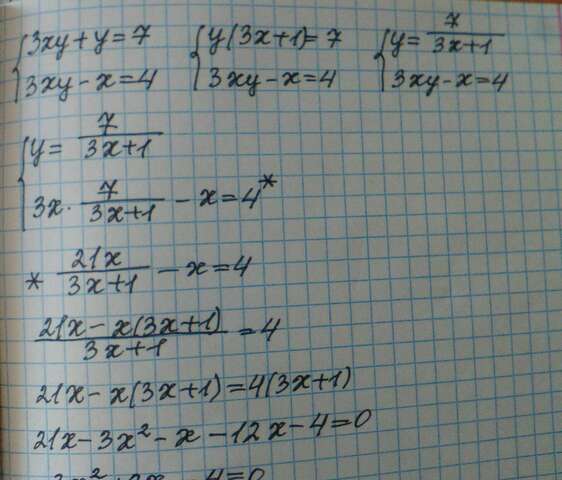 {3xy+y=7 {y(3x+1)=7 {y=7/(3x+1)
3xy-x=4 3xy-x=4 3xy-x=4
{y=7/(3x+1)
3x·7/(3x+1)-x=4*
* 21x/(3x+1)-x=4
(21x-x(3x+1))/(3x+1)=4
21x-x(3x+1)=4(3x+1)
21x-3x²-x-12x-4=0